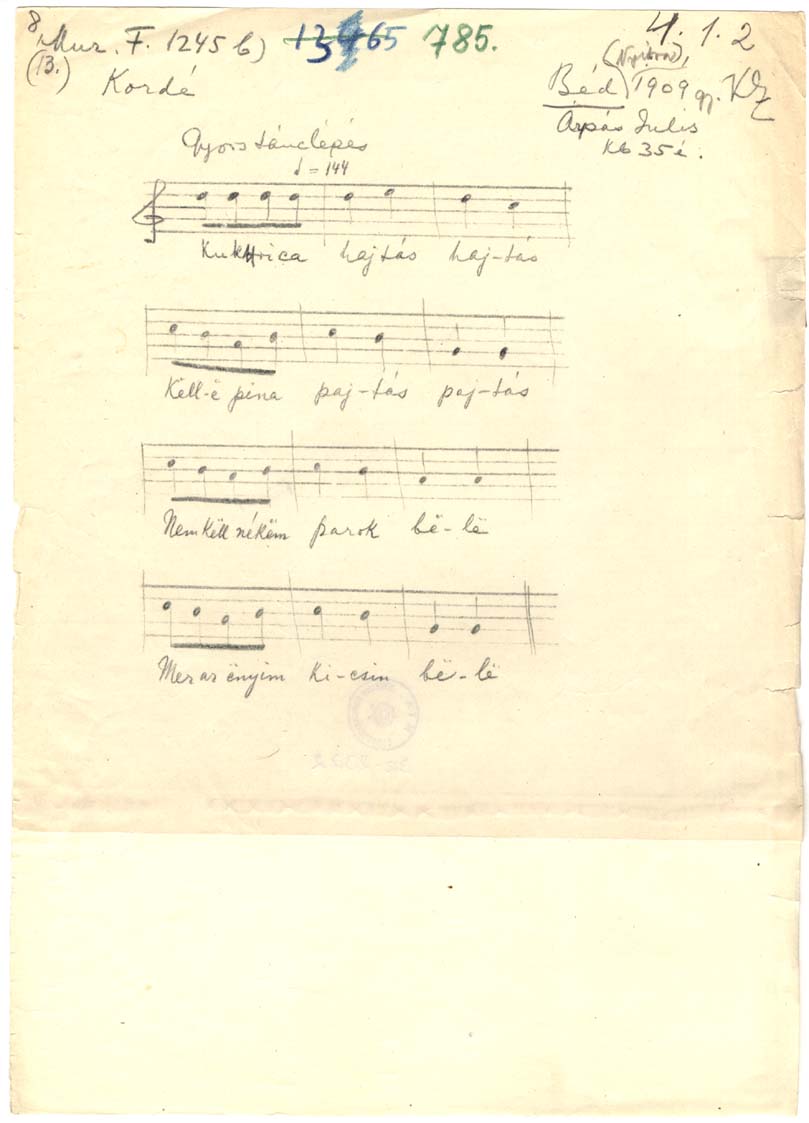 8, Muz. F. 1245 b) 13465 785. 4.1.2
(13.) (Nyitra),
Kordé Béd 1909 gy. KZ
Árpás Julis
Kb 35 é.
Gyors tánclépés
= 144
Kukurica hajtás haj-tás
Këll-ë pina paj-tás paj-tás
Nem këll nékëm parok bë-lë
Mer az ënyim ki-csin bë-lë